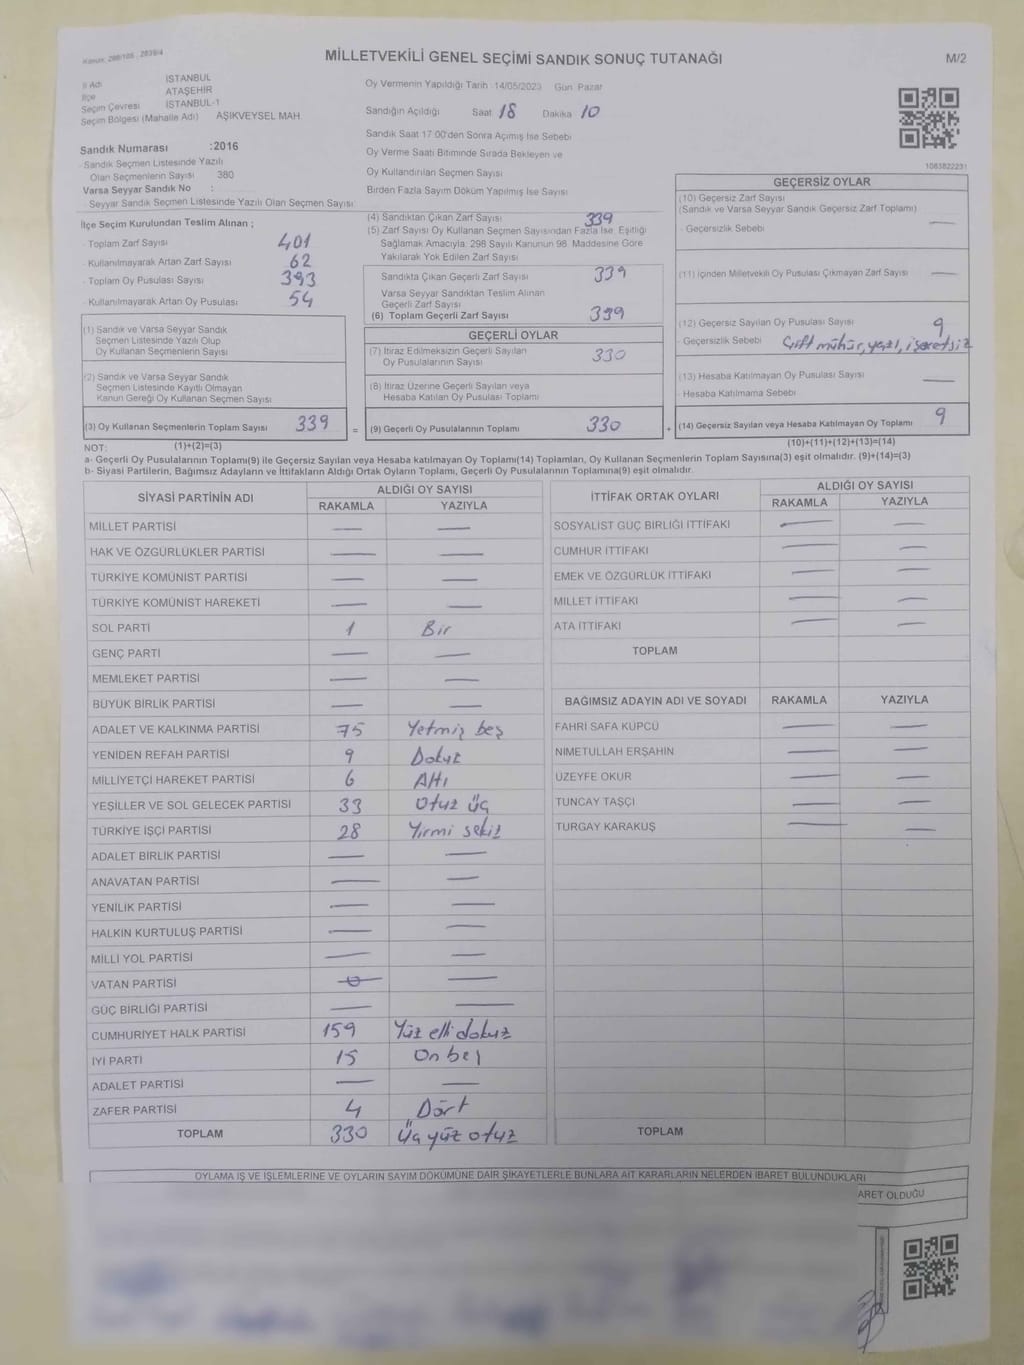 MİLLETVEKİLİ GENEL SEÇİMİ SANDIK SONUÇ TUTANAĞI
M/2
İl Adı İSTANBUL
İlçe ATAŞEHİR
Seçim Çevresi İSTANBUL-1
Seçim Bölgesi (Mahalle Adı) AŞIKVEYSEL MAH.
Sandık Numarası :2016
- Sandık Seçmen Listesinde Yazılı
Olan Seçmenlerin Sayısı 380
Varsa Seyyar Sandık No :
- Seyyar Sandık Seçmen Listesinde Yazılı Olan Seçmen Sayısı
Oy Vermenin Yapıldığı Tarih 14/05/2023 Gün Pazar
Sandığın Açıldığı Saat 18 Dakika 10
Sandık Saat 17 00'den Sonra Açımış İse Sebebi
Oy Verme Saati Bitiminde Sırada Bekleyen ve
Oy Kullandırılan Seçmen Sayısı
Birden Fazla Sayım Döküm Yapılmış İse Sayısı
1083822231
İlçe Seçim Kurulundan Teslim Alınan ;
- Toplam Zarf Sayısı 401
- Kullanılmayarak Artan Zarf Sayısı 62
- Toplam Oy Pusulası Sayısı 393
- Kullanılmayarak Artan Oy Pusulası 54
(1) Sandık ve Varsa Seyyar Sandık
Seçmen Listesinde Yazılı Olup
Oy Kullanan Seçmenlerin Sayısı
(2) Sandık ve Varsa Seyyar Sandık
Seçmen Listesinde Kayıtlı Olmayan
Kanun Gereği Oy Kullanan Seçmen Sayısı
(3) Oy Kullanan Seçmenlerin Toplam Sayısı 339 =
(4) Sandıktan Çıkan Zarf Sayısı 339
(5) Zarf Sayısı Oy Kullanan Seçmen Sayısından Fazla İse, Eşitliği
Sağlamak Amacıyla, 298 Sayılı Kanunun 98. Maddesine Göre
Yakılarak Yok Edilen Zarf Sayısı
Sandıkta Çıkan Geçerli Zarf Sayısı 339
Varsa Seyyar Sandıktan Teslim Alınan
Geçerli Zarf Sayısı
(6) Toplam Geçerli Zarf Sayısı 339
GEÇERLİ OYLAR
(7) İtiraz Edilmeksizin Geçerli Sayılan
Oy Pusulalarının Sayısı 330
(8) İtiraz Üzerine Geçerli Sayılan veya
Hesaba Katılan Oy Pusulası Toplamı
(9) Geçerli Oy Pusulalarının Toplamı 330 +
GEÇERSİZ OYLAR
(10) Geçersiz Zarf Sayısı
(Sandık ve Varsa Seyyar Sandık Geçersiz Zarf Toplamı)
- Geçersizlik Sebebi —
(11) İçinden Milletvekili Oy Pusulası Çıkmayan Zarf Sayısı —
(12) Geçersiz Sayılan Oy Pusulası Sayısı 9
- Geçersizlik Sebebi Çift mühür, yazı, işaretsiz
(13) Hesaba Katılmayan Oy Pusulası Sayısı —
- Hesaba Katılmama Sebebi
(14) Geçersiz Sayılan veya Hesaba Katılmayan Oy Toplamı 9
NOT: (1)+(2)=(3) (10)+(11)+(12)+(13)=(14)
a- Geçerli Oy Pusulalarının Toplamı(9) ile Geçersiz Sayılan veya Hesaba katılmayan Oy Toplamı(14) Toplamları, Oy Kullanan Seçmenlerin Toplam Sayısına(3) eşit olmalıdır. (9)+(14)=(3)
b- Siyasi Partilerin, Bağımsız Adayların ve İttifakların Aldığı Ortak Oyların Toplamı, Geçerli Oy Pusulalarının Toplamına(9) eşit olmalıdır.
SİYASİ PARTİNİN ADI ALDIĞI OY SAYISI
RAKAMLA YAZIYLA
MİLLET PARTİSİ — —
HAK VE ÖZGÜRLÜKLER PARTİSİ — —
TÜRKİYE KOMÜNİST PARTİSİ — —
TÜRKİYE KOMÜNİST HAREKETİ — —
SOL PARTİ 1 Bir
GENÇ PARTİ — —
MEMLEKET PARTİSİ — —
BÜYÜK BİRLİK PARTİSİ — —
ADALET VE KALKINMA PARTİSİ 75 Yetmiş beş
YENİDEN REFAH PARTİSİ 9 Dokuz
MİLLİYETÇİ HAREKET PARTİSİ 6 Altı
YEŞİLLER VE SOL GELECEK PARTİSİ 33 Otuz üç
TÜRKİYE İŞÇİ PARTİSİ 28 Yirmi sekiz
ADALET BİRLİK PARTİSİ — —
ANAVATAN PARTİSİ — —
YENİLİK PARTİSİ — —
HALKIN KURTULUŞ PARTİSİ — —
MİLLİ YOL PARTİSİ — —
VATAN PARTİSİ — —
GÜÇ BİRLİĞİ PARTİSİ — —
CUMHURİYET HALK PARTİSİ 159 Yüz elli dokuz
İYİ PARTİ 15 On beş
ADALET PARTİSİ — —
ZAFER PARTİSİ 4 Dört
TOPLAM 330 Üç yüz otuz
İTTİFAK ORTAK OYLARI ALDIĞI OY SAYISI
RAKAMLA YAZIYLA
SOSYALİST GÜÇ BİRLİĞİ İTTİFAKI — —
CUMHUR İTTİFAKI — —
EMEK VE ÖZGÜRLÜK İTTİFAKI — —
MİLLET İTTİFAKI — —
ATA İTTİFAKI — —
TOPLAM
BAĞIMSIZ ADAYIN ADI VE SOYADI RAKAMLA YAZIYLA
FAHRİ SAFA KÜPCÜ — —
NİMETULLAH ERŞAHİN — —
ÜZEYFE OKUR — —
TUNCAY TAŞÇI — —
TURGAY KARAKUŞ — —
TOPLAM
OYLAMA İŞ VE İŞLEMLERİNE VE OYLARIN SAYIM DÖKÜMÜNE DAİR ŞİKAYETLERLE BUNLARA AİT KARARLARIN NELERDEN İBARET BULUNDUKLARI
ARET OLDUĞU